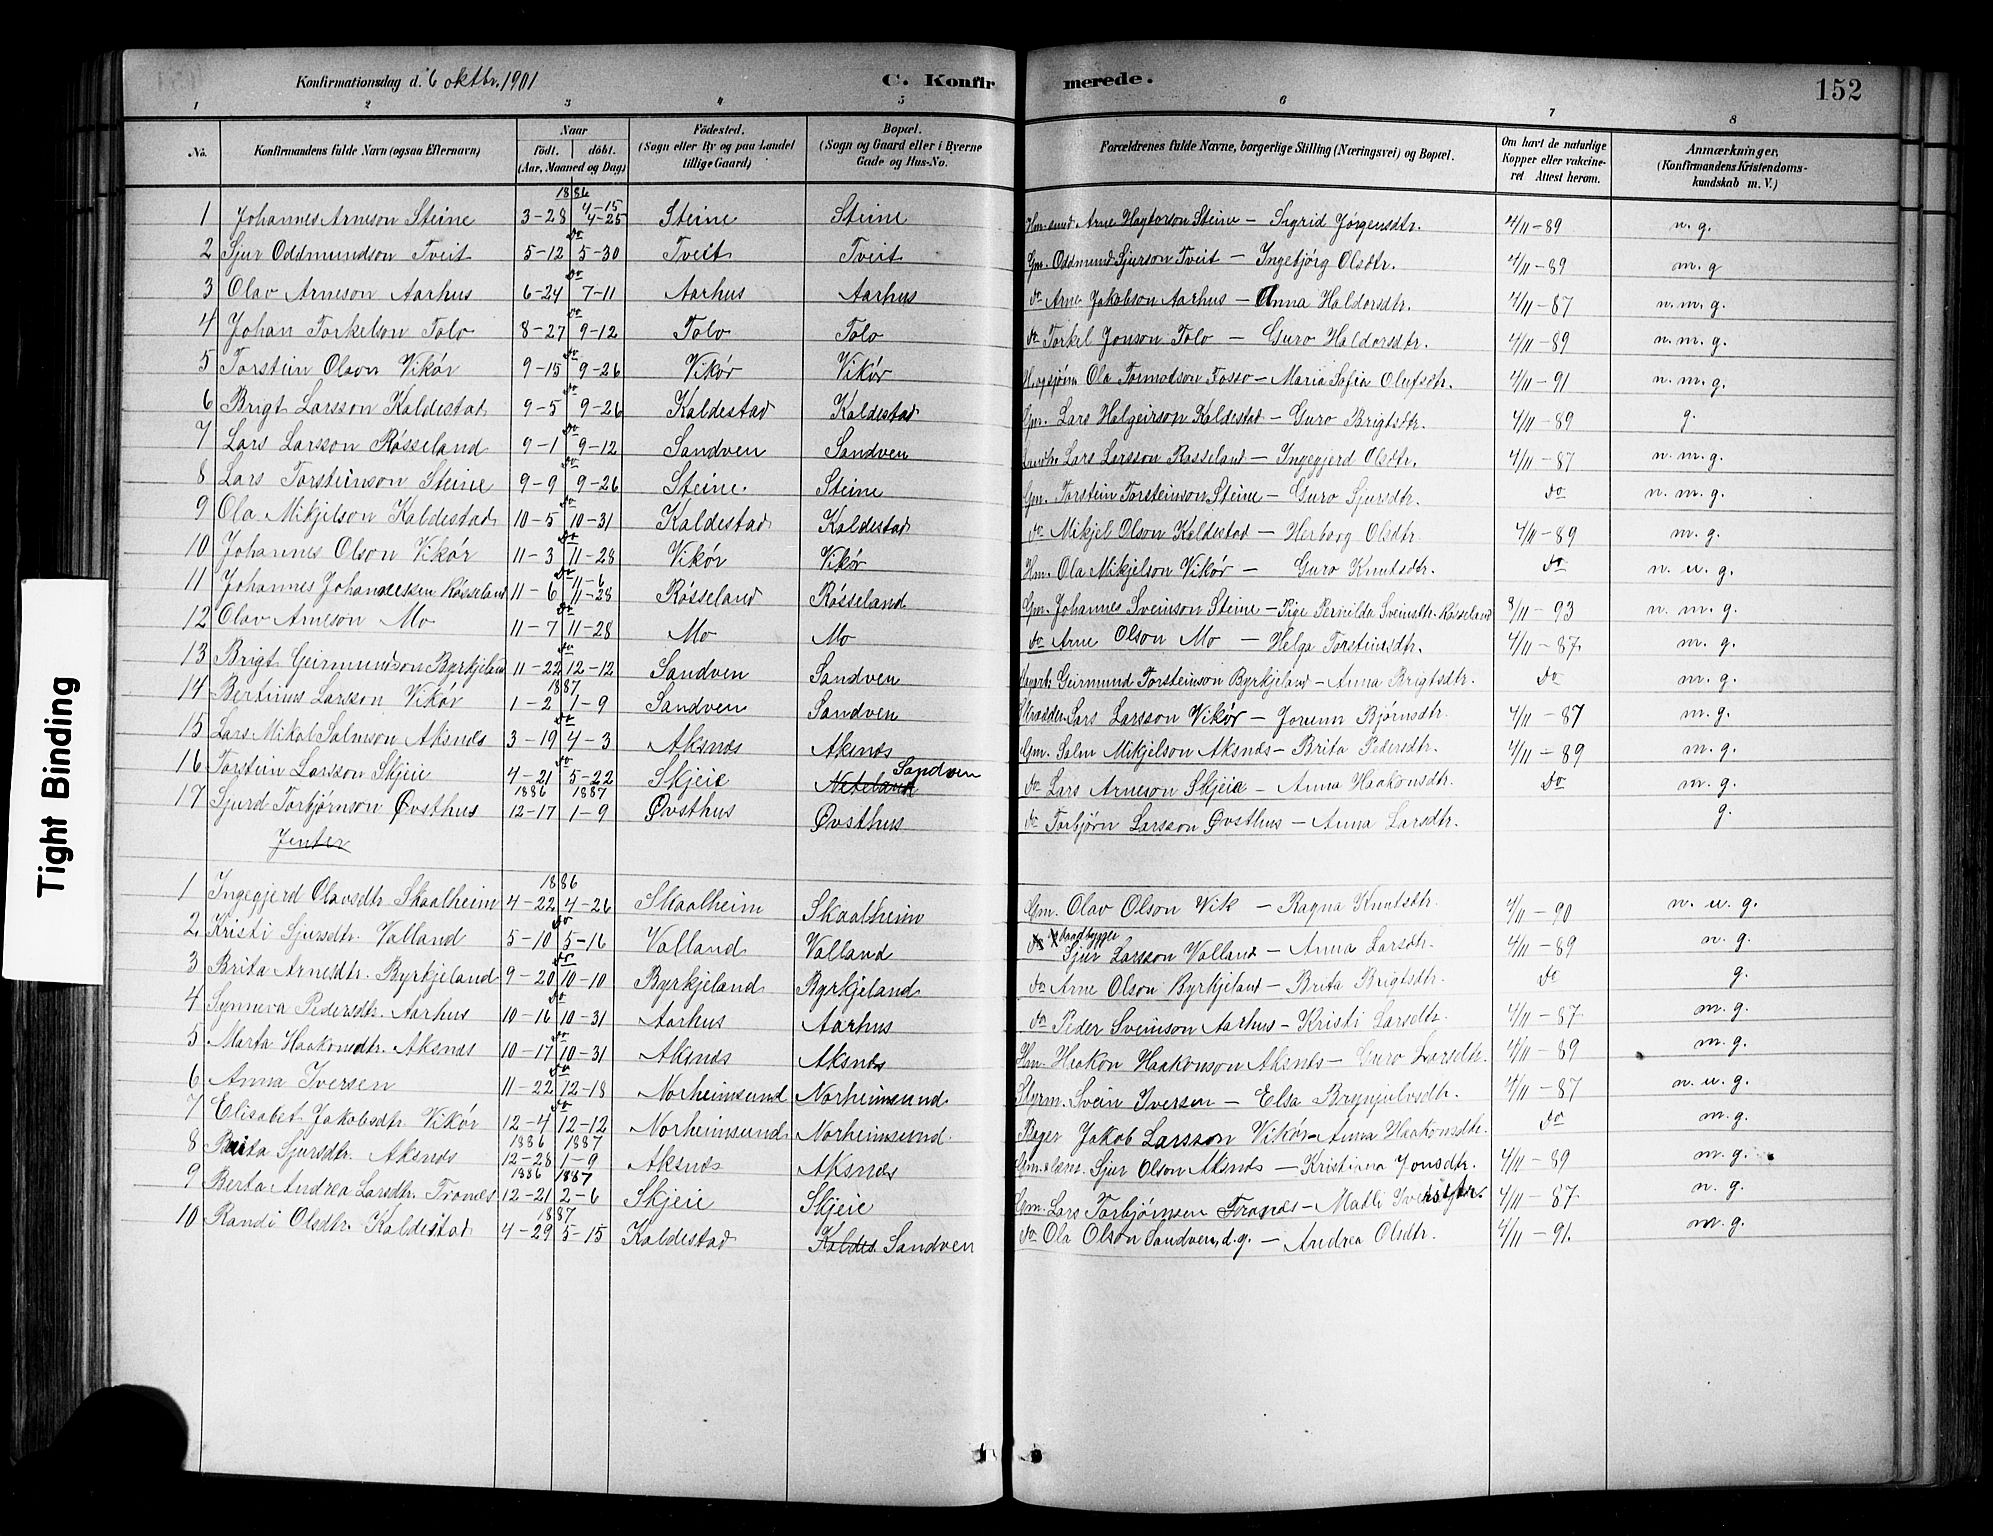 Konfirmationsdag d. 6 oktbr. 1901 C. Konfir merede. 152
1 2 3 4 5 6 7 8
No. Konfirmandens fulde Navn (ogsaa Efternavn) Naar født. døbt. (Aar, Maaned og Dag) Fødested. (Sogn eller By og paa Landet tillige Gaard) Bopæl. (Sogn og Gaard eller i Byerne Gade og Hus-No. Forældrenes fulde Navne, borgerlige Stilling (Næringsvei) og Bopæl. Om havt de naturlige Kopper eller vakcineret Attest herom. Anmærkninger. (Konfirmandens Kristendomskundskab m. V.)
1886
1 Johannes Arneson Steine 3-28 4-15 4-25 Steine Steine Arne Steine - Sigrid Jørgensdtr. 4/11-89 n. g.
2 Sjur Oddmundson Tveit 5-12 do 5-30 Tveit Tveit Gm. Oddmund Sjurson Tveit - Ingebjørg Olsdtr. 4/11-89 m. g
3 Olav Arneson Aarhus 6-24 do 7-11 Aarhus Aarhus do Arne Jakobson Aarhus - Anna Haldorsdtr. 4/11-87 n. m. g.
4 Johan Torkelson Tolo 8-27 do 9-12 Tolo Tolo do Torkel Jonson Tolo - Guro Haldorsdtr. 4/11-89 n. m. g.
5 Torstein Olavn Vikør 9-15 do 9-26 Vikør Vikør Ola Tormodson Fosso - Maria Sofia Olufsdtr. 4/11-91 n. m. g.
6 Brigt Larsson Kaldestad 9-5 do 9-26 Kaldestad Kaldestad Gm. Lars Helgeirson Kaldestad - Guro Brigtsdtr. 4/11-89 g.
7 Lars Larsson Røsseland 9-1 do 9-12 Sandven Sandven Lars Larsson Røsseland - Ingegjerd Olsdtr. 4/11-87 n. m. g.
8 Lars Torsteinson Steine 9-9 do 9-26 Steine Steine Gm. Torstein Torsteinson Steine - Guro Sjursdtr. do n. m. g.
9 Ola Mikjelson Kaldestad 10-5 do 10-31 Kaldestad Kaldestad do Mikjel Olson Kaldestad - Herborg Olsdtr. 4/11-89 m. g.
10 Johannes Olson Vikør 11-3 do 11-28 Vikør Vikør Hm. Ola Mikjelson Vikør - Guro Knutsdtr. do n. u. g.
11 Johannes Johannessen Røsseland 11-6 do 11-6 11-28 Røsseland Røsseland Gm. Johannes Sveinson Steine - Pige Pernilda Sveinsdtr. Røsseland 8/11-93 n. m. g.
12 Olav Arneson Mo 11-7 do 11-28 Mo Mo do Arne Olson Mo - Helga Torsteinsdtr. 4/11-87. m. g.
13 Brigt Geirmundson Byrkjeland 11-22 do 12-12 Sandven Sandven Geirmund Torsteinson Byrkjeland - Anna Brigtsdtr. do m. g.
14 Bertinus Larsson Vikør 1887 1-2 1-9 Sandven Sandven Lars Larsson Vikør - Jorunn Bjørnsdtr. 4/11-87 m. g.
15 Lars Mikal Salmson Aksnes 3-19 do 4-3 Aksnæs Aksnæs Gm. Salm Mikjelson Aksnæs - Brita Pedersdtr. 4/11-89 m. g.
16 Torstein Larsson Skjeie 4-21 do 5-22 Skjeie Neteland Sandven do Lars Arneson Skjeie - Anna Haakonsdtr. do m. g.
17 Sjurd Torbjørnson Øvsthus 1886 12-17 1887 1-9 Øvsthus Øvsthus do Torbjørn Larsson Øvsthus - Anna Larsdtr. g.
Jenter
1886
1 Ingegjerd Olavsdtr. Skaalheim 4-22 4-26 Skaalheim Skaalheim Gm. Olav Olson Vik - Ragna Knutsdtr. 4/11-90 n. u. g.
2. Kristi Sjursdtr. Valland 5-10 do 5-16 Valland Valland do Baadbygger Sjur Larsson Valland - Anna Larsdtr. 4/11-89 n. g.
3 Brita Arnesdtr. Byrkjeland 9-20 do 10-10 Byrkjeland Byrkjeland do Arne Olson Byrkjeland - Brita Brigtsdtr. do g.
4 Synneva Pedersdtr. Aarhus 10-16 do 10-31 Aarhus Aarhus do Peder Sveinson Aarhus - Kristi Larsdtr. 4/11-87 m. g.
5 Marta Haakonsdtr. Aksnæs 10-17 do 10-31 Aksnæs Aksnæs Hm. Haakon Haakonson Aksnes - Guro Larsdtr. 4/11-89 m. g.
6 Anna Iversen 11-22 do 12-18 Norheimsund Norheimsund Styrm. Svein Iversen - Elsa Brynjulvsdtr. 4/11-87 n. u. g.
7 Elisabet Jakobsdtr. Vikør 12-4 do 12-12 Norheimsund Norheimsund. Bager Jakob Larsson Vikør - Anna Haakonsdtr. do m. g.
8 Brita Sjursdtr. Aksnes 1886 12-28 1887 1-9 Aksnæs Aksnæs Sjur Olson Aksnes - Kristiana Jonsdtr. 4/11-89 m. g.
9 Berta Andrea Larsdtr. Tronæs 1886 12-21 1887 2-6 Skjeie Skjeie Gm. Lars Torbjørnsen Tronæs - Madli Iversdtr. 4/11-87. n. g.
10 Randi Olsdtr. Kaldestad 1887 4-29 5-15 Kaldestad Kaldes Sandven do Ola Olson Sandven, d.y. - Andrea Olsdtr. 4/11-91. m. g.
Tight Binding